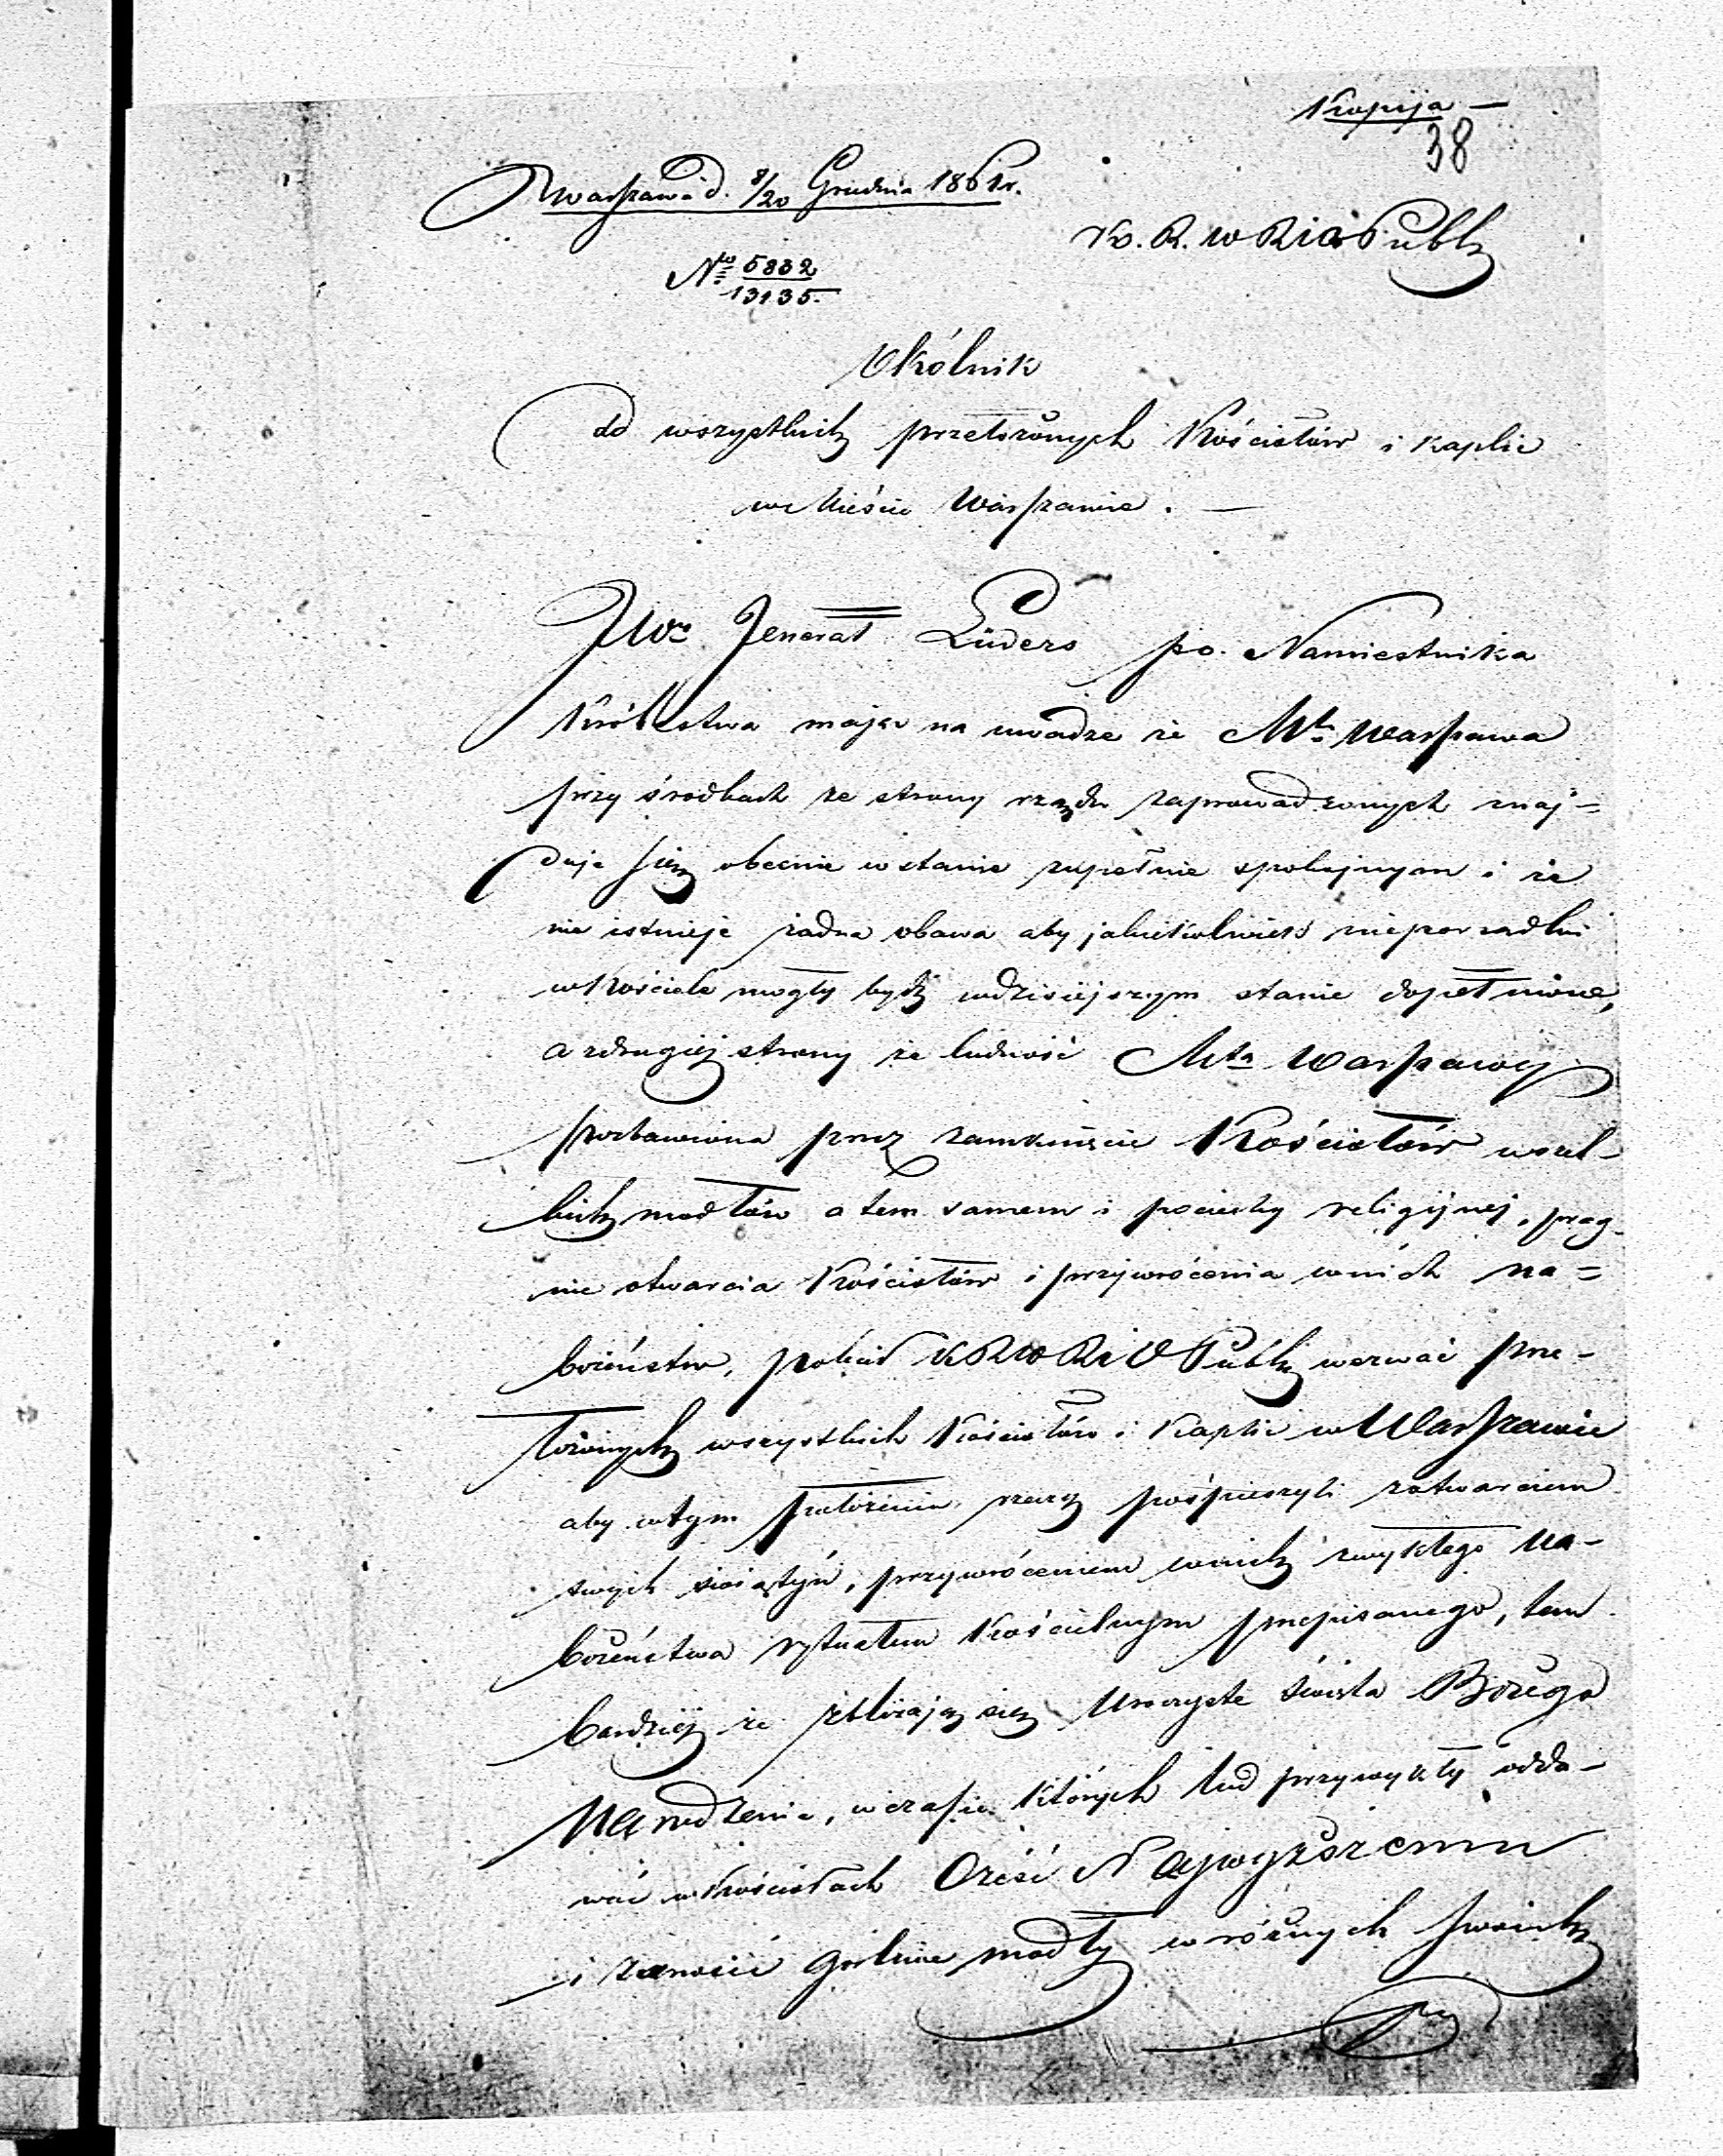 Kopija —
38
Warszawa d. 8/20 Grudnia 1861 r.
K. R. W R i O Publ
No 5832
13135.
Okólnik
do wszystkich przełożonych Kościołów i kaplic
w Mieście Warszawie. —
JWny Jenerał Lüders p.o. Namiestnika
Królestwa mając na uwadze że Mto Warszawa
przy środkach ze strony rządu zaprowadzonych znaj=
duje się obecnie w stanie zupełnie spokojnym i że
nie istnieje żadna obawa aby jakiekolwiek nieporządki
w Kościele mogły bydź w dzisiejszym stanie dopełnione,
a z drugiej strony że ludność Mta Warszawy
pozbawiona przez zamknięcie Kościołów wszel-
kich modłów a tem samem i pociechy religijnej, prag-
nie otwarcia Kościołów i przywrócenia w nich na=
bożeństw, polecił K R W R i O Publ wezwać prze-
łożonych wszystkich Kościołów i Kaplic w Warszawie
aby w tym położeniu rzeczy pośpieszyli z otwarciem
swych świątyń, przywróceniem w nich zwykłego na-
bożeństwa rytuałem Kościelnym przepisanego, tem
bardziej że zbliżają się Uroczyste święta Bożego
Narodzenia, w czasie których lud przywykły odda-
wać w Kościołach Cześć Najwyższemu
i zanosić gorliwe modły w różnych swoich